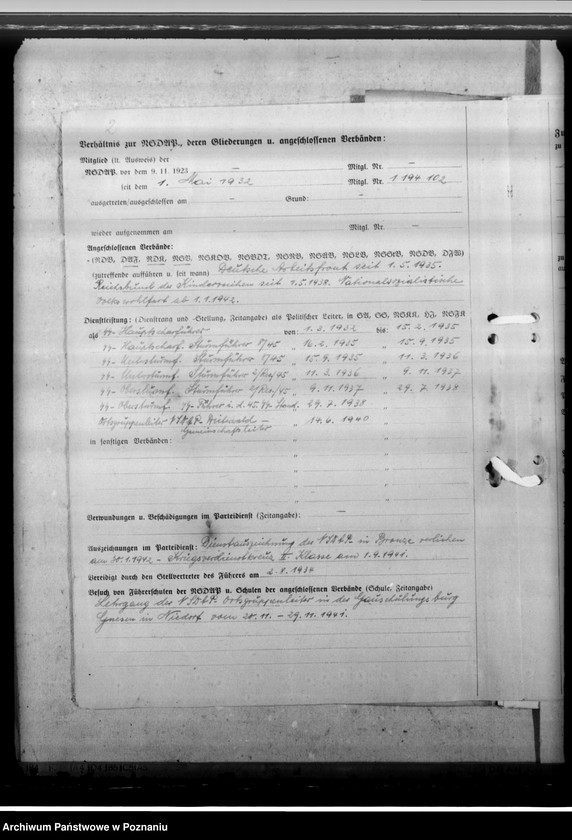 2
Verhältnis zur NSDAP., deren Gliederungen u. angeschlossenen Verbänden:
Mitglied (lt. Ausweis) der
NSDAP. vor dem 9. 11. 1923 — Mitgl. Nr. —
seit dem 1. Mai 1932 Mitgl. Nr. 1 194 102
ausgetreten/ausgeschlossen am — Grund: —
wieder aufgenommen am — Mitgl. Nr. —
Angeschlossenen Verbände:
(RDB, DAF, RDK, NSV, NSKOV, NSBDT, NSRB, NSDÄB, NSLB, NSDStB, NSDB, DFW)
(zutreffende aufführen u. seit wann) Deutsche Arbeitsfront seit 1.5.1935.
Reichsbund der Kinderreichen seit 1.5.1938. Nationalsozialistische
Volkswohlfart ab 1.1.1942.
Dienstleistung: (Dienstrang und -Stellung, Zeitangabe) als Politischer Leiter, in SA, SS, NSKK, HJ, NSFK
als SS-Hauptscharführer von: 1.3.1932 bis: 15.2.1935
SS-Hauptscharf. Sturmführer 8/45 " 16.2.1935 " 15.9.1935
SS-Untersturmf. Sturmführer 8/45 " 15.9.1935 " 11.3.1936
SS-Unterstumf. Sturmführer 2/Res/45 " 11.3.1936 " 9.11.1937
SS-Oberstumf. Sturmführer 2/Res/45 " 9.11.1937 " 29.7.1938
SS-Oberstumf. SS-Führer i. d. 45. SS-Stand. 29.7.1938 "
Ortsgruppenleiter NSDAP. " 19.6.1940 "
Gemeinschaftsleiter
in sonstigen Verbänden: " "
" "
" "
" "
Verwundungen u. Beschädigungen im Parteidienst (Zeitangabe): —
Auszeichnungen im Parteidienst: Dienstauszeichnung der NSDAP. in Bronze verliehen
am 30.1.1942 – Kriegsverdienstkreuz II Klasse am 1.9.1941.
Vereidigt durch den Stellvertreter des Führers am 2.8.1934
Besuch von Führerschulen der NSDAP u. Schulen der angeschlossenen Verbände (Schule, Zeitangabe)
Lehrgang der NSDAP. Ortsgruppenleiter in der Gauschulungsburg
Gnesen in vom 20.11. – 29.11.1941.
Archiwum Państwowe w Poznaniu